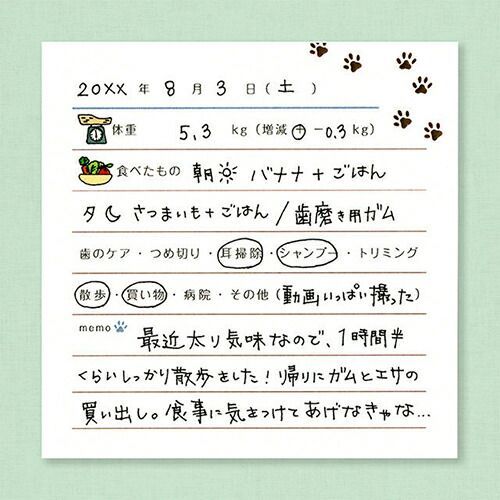 20XX 年 8 月 3 日(土)
体重 5.3 kg(増減 ⊕ -0.3kg)
食べたもの 朝 バナナ+ごはん
夕 さつまいも+ごはん/歯磨き用ガム
歯のケア・つめ切り・耳掃除・シャンプー・トリミング
散歩・買い物・病院・その他(動画いっぱい撮った)
memo 最近太り気味なので、1時間半
くらいしっかり散歩をした!帰りにガムとエサの
買い出し。食事に気をつけてあげなきゃな…